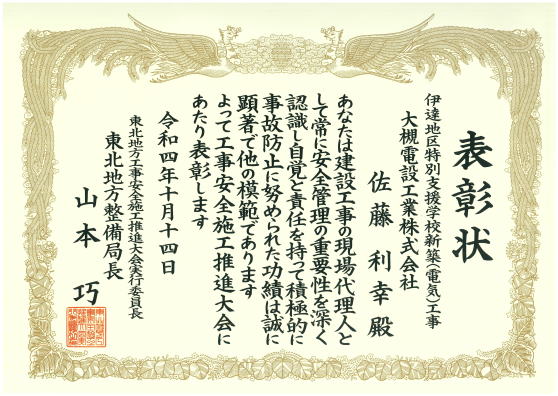 表彰状
伊達地区特別支援学校新築(電気)工事
大槻電設工業株式会社
佐藤利幸殿
あなたは建設工事の現場代理人と
して常に安全管理の重要性を深く
認識し自覚と責任を持って積極的に
事故防止に努められた功績は誠に
顕著で他の模範であります
よって工事安全施工推進大会に
あたり表彰します
令和四年十月十四日
東北地方工事安全施工推進大会実行委員長
東北地方整備局長
山本巧